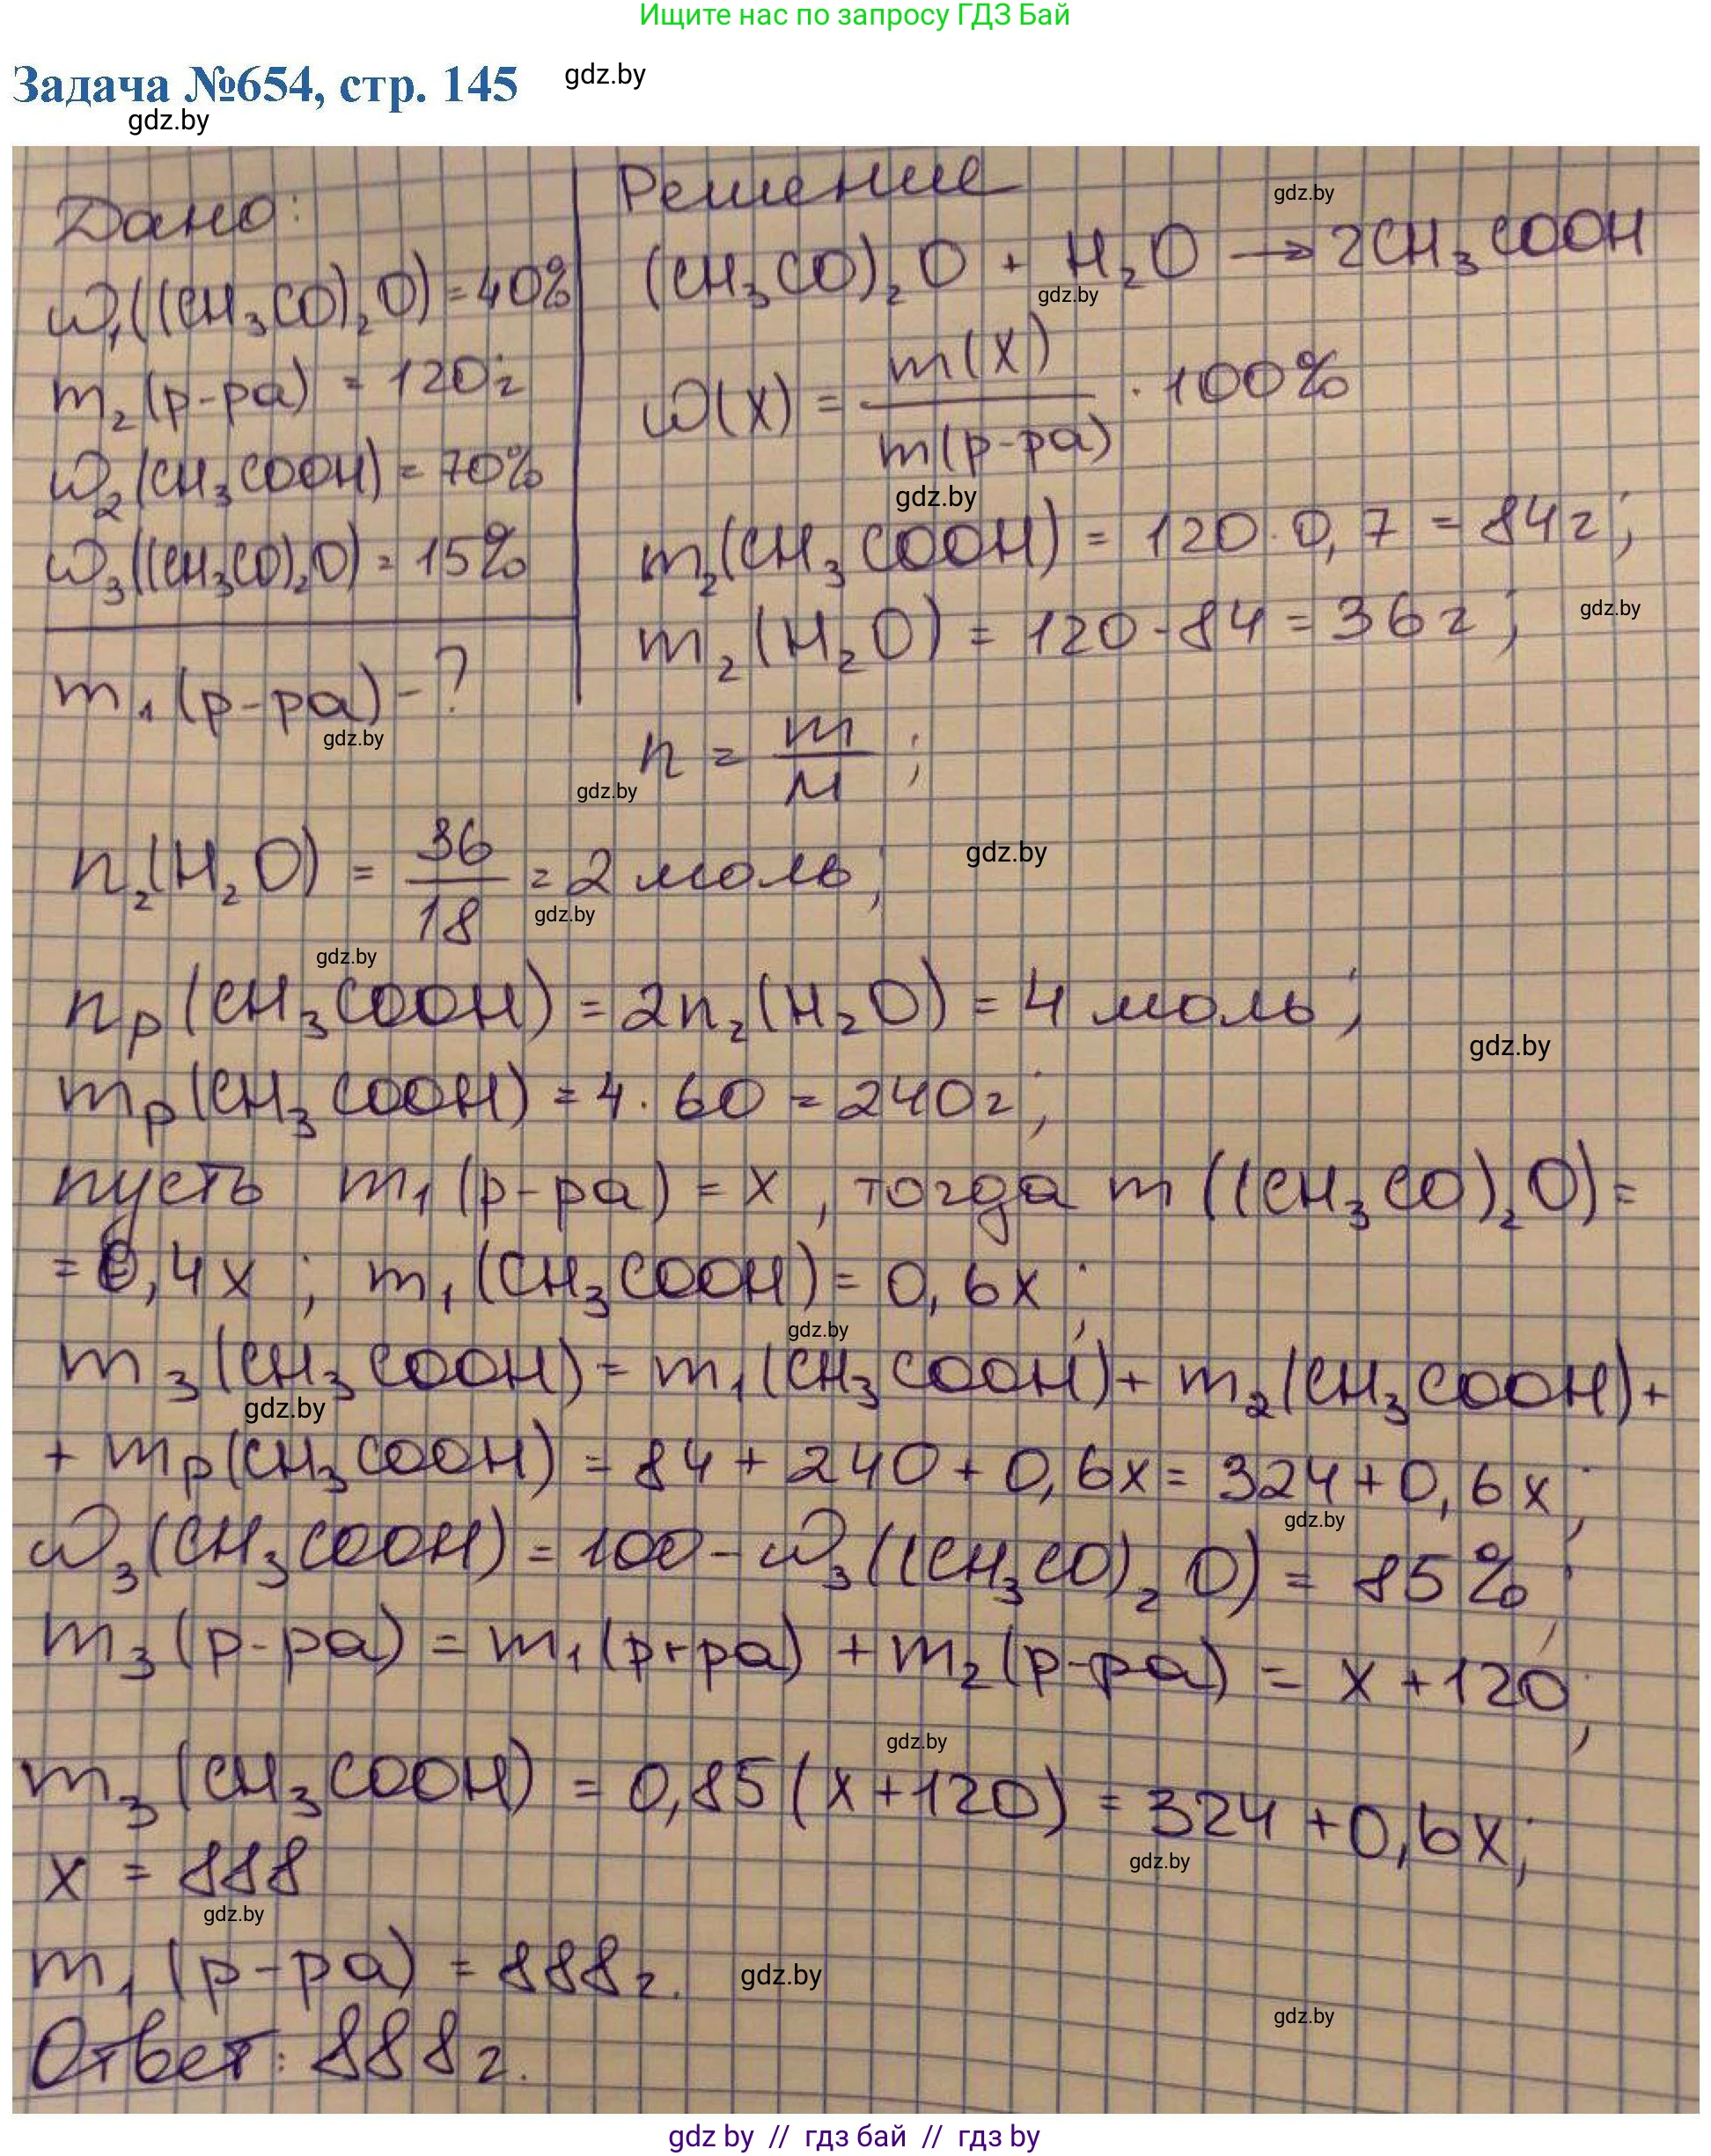 Ищите нас по запросу ГДЗ Бай
Задача №654, стр. 145
gdz.by
gdz.by
Дано:
ω₁((CH₃CO)₂O) = 40%
m₂(р-ра) = 120г
ω₂(CH₃COOH) = 70%
ω₃((CH₃CO)₂O) = 15%
m₁(р-ра) - ?
gdz.by
Решение
gdz.by
(CH₃CO)₂O + H₂O → 2CH₃COOH
gdz.by
ω(X) = m(X) / m(р-ра) · 100%
gdz.by
m₂(CH₃COOH) = 120 · 0,7 = 84г;
m₂(H₂O) = 120 - 84 = 36г;
gdz.by
n = m / M ;
gdz.by
n₂(H₂O) = 36 / 18 = 2 моль;
gdz.by
gdz.by
gdz.by
nр(CH₃COOH) = 2n₂(H₂O) = 4 моль;
gdz.by
mр(CH₃COOH) = 4 · 60 = 240г;
пусть m₁(р-ра) = x, тогда m((CH₃CO)₂O) =
= 0,4x; m₁(CH₃COOH) = 0,6x;
gdz.by
m₃(CH₃COOH) = m₁(CH₃COOH) + m₂(CH₃COOH) +
gdz.by
+ mр(CH₃COOH) = 84 + 240 + 0,6x = 324 + 0,6x;
gdz.by
ω₃(CH₃COOH) = 100 - ω₃((CH₃CO)₂O) = 85%;
m₃(р-ра) = m₁(р-ра) + m₂(р-ра) = x + 120;
gdz.by
m₃(CH₃COOH) = 0,85(x + 120) = 324 + 0,6x;
gdz.by
x = 888
gdz.by
m₁(р-ра) = 888г.
gdz.by
gdz.by
Ответ: 888г.
gdz by // гдз бай // гдз by